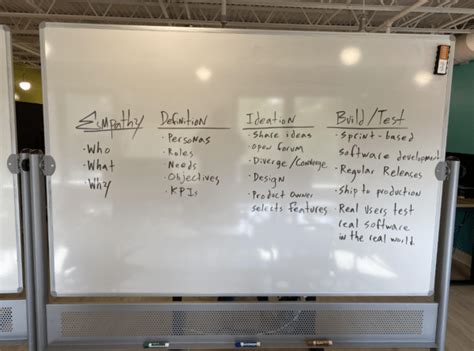 Empathy
• Who
• What
• Why
Definition
• Personas
• Roles
• Needs
• Objectives
• KPIs
Ideation
• Share ideas
• open forum
• Diverge/Converge
• Design
• Product Owner
selects features
Build/Test
• Sprint-based
software development
• Regular Releases
• Ship to production
• Real Users test
real software
in the real world.